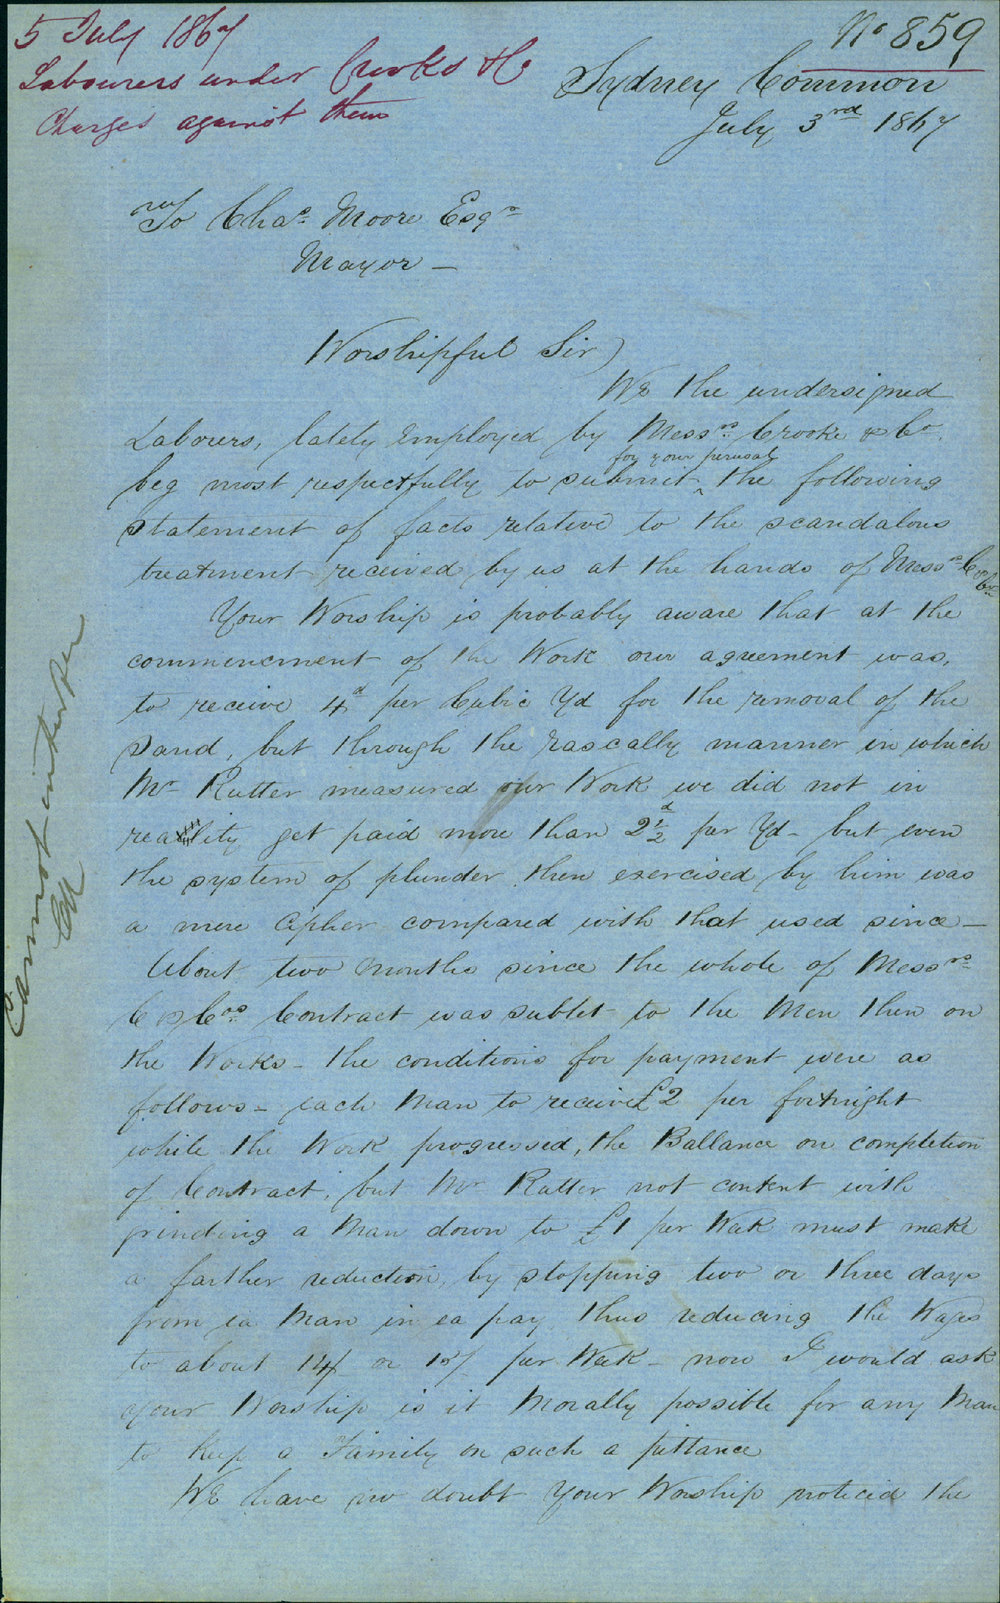 5 July 1867
Labourers under Crooks & Co
Charges against them
No 859
Sydney Common
July 3rd 1867
To Chas Moore Esqr
Mayor —
Worshipful Sir)
We the undersigned
Labourers, lately Employed by Messrs Crooke & Co.
for your perusal
beg most respectfully to submit ^ the following
statement of facts relative to the scandalous
treatment received by us at the hands of Messrs C & Co
Your Worship is probably aware that at the
commencment of the Work our agreement was,
to receive 4d per Cubic Yd for the removal of the
Sand, but through the rascally manner in which
Mr Rutter measured our Work we did not in
reality get paid more than 2½d per Yd - but even
the system of plunder then exercised by him was
a mere Cipher compared with that used since —
About two Months since the whole of Messrs
C & Cos Contract was sublet to the Men then on
the Works - the conditions for payment were as
follows - each Man to receive £2 per fortnight
while the Work progressed, the Ballance on completion
of Contract, but Mr Rutter not content with
grinding a Man down to £1 per Week must make
a farther reduction, by stopping two or three days
from ea Man in ea pay, thus reducing the Wages
to about 14/ or 12/ per Week - now I would ask
your Worship is it Morally possible for any Man
to Keep a Family on such a pittance
We have no doubt Your Worship noticed the
Cannot interfere
CM